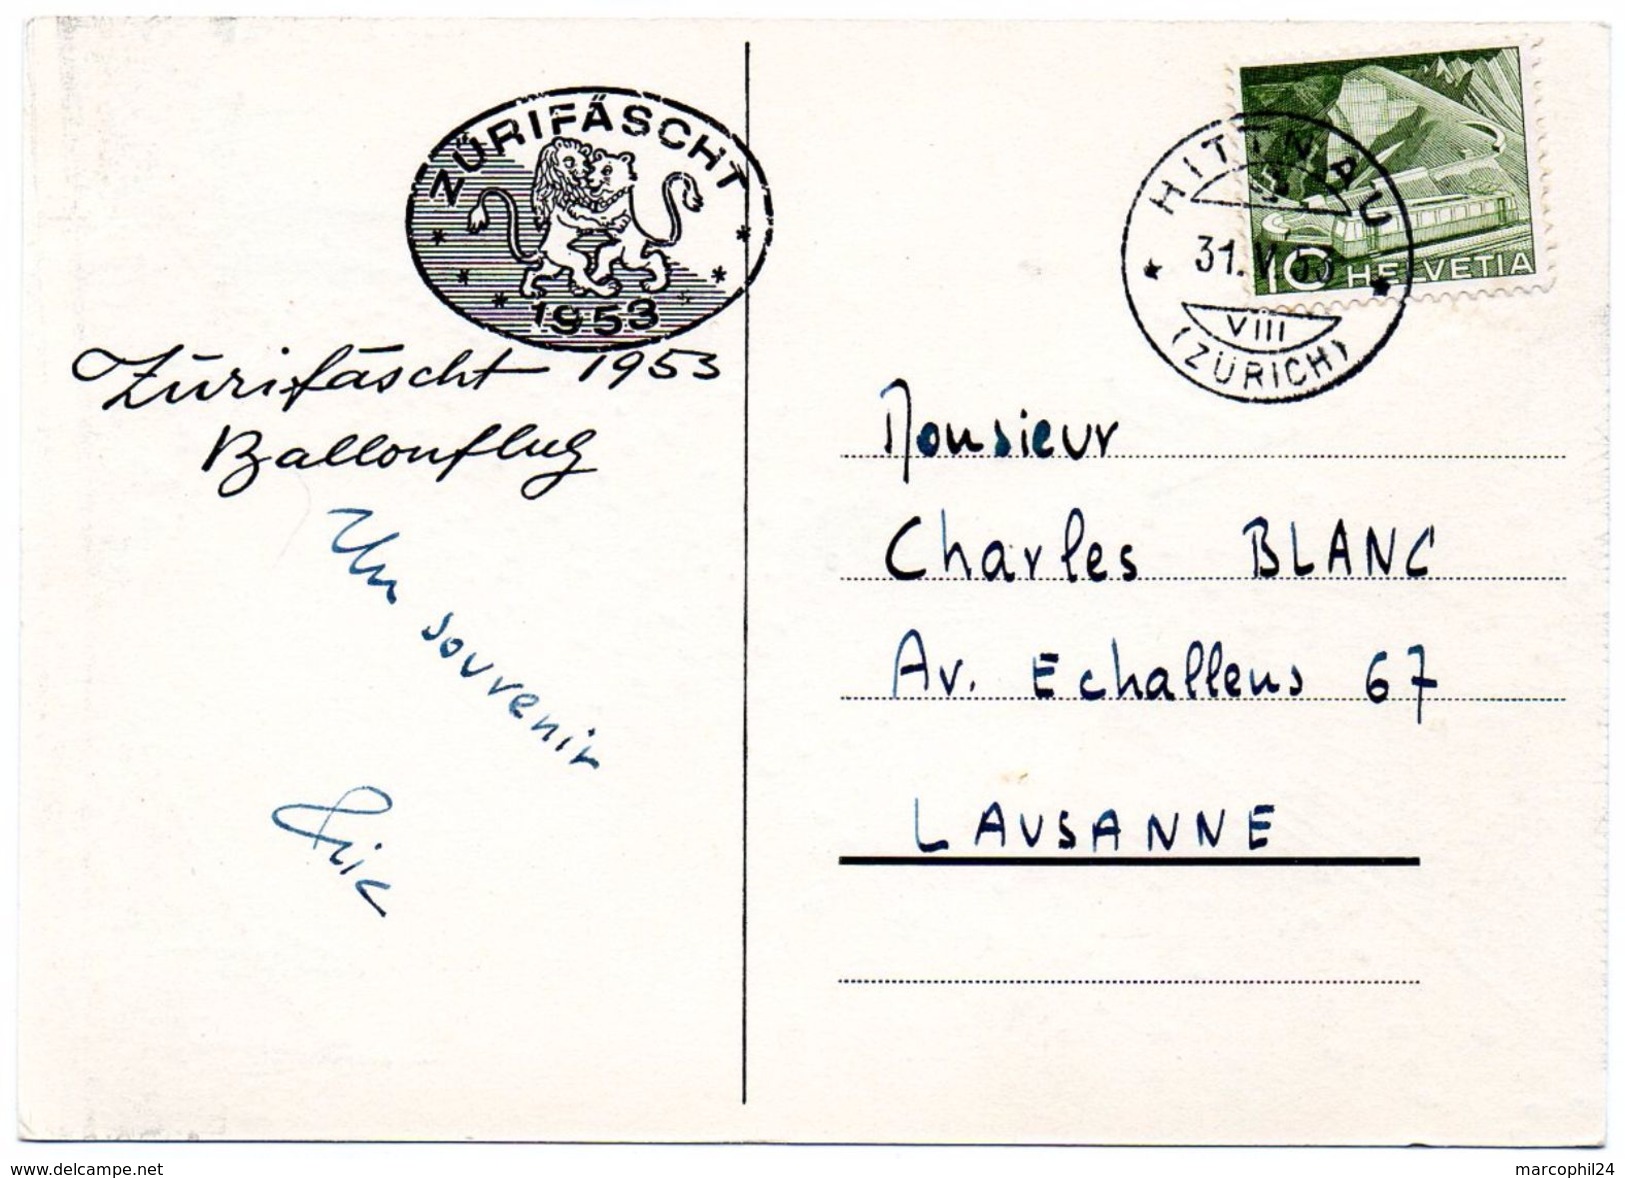 ZÜRIFÄSCHT
1953
Zürifäscht 1953
Ballonflug
Un souvenir
HITTNAU
31.V.53
VIII
(ZÜRICH)
10 HELVETIA
Monsieur
Charles BLANC
Av. Echallens 67
LAUSANNE
www.delcampe.net
marcophil24